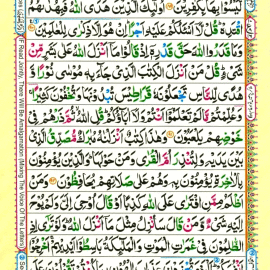 لَيْسُوْا بِهَا بِكٰفِرِيْنَ ۝ اُولٰٓئِكَ الَّذِيْنَ هَدَى اللّٰهُ فَبِهُدٰىهُمُ
اقْتَدِهْ ؕ قُلْ لَّاۤ اَسْـَٔلُكُمْ عَلَيْهِ اَجْرًا ؕ اِنْ هُوَ اِلَّا ذِكْرٰى لِلْعٰلَمِيْنَ ۝
وَمَا قَدَرُوا اللّٰهَ حَقَّ قَدْرِهٖۤ اِذْ قَالُوْا مَاۤ اَنْزَلَ اللّٰهُ عَلٰى بَشَرٍ مِّنْ
شَيْءٍ ؕ قُلْ مَنْ اَنْزَلَ الْكِتٰبَ الَّذِيْ جَآءَ بِهٖ مُوْسٰى نُوْرًا وَّ
هُدًى لِّلنَّاسِ تَجْعَلُوْنَهٗ قَرَاطِيْسَ تُبْدُوْنَهَا وَتُخْفُوْنَ كَثِيْرًا ۚ
وَعُلِّمْتُمْ مَّا لَمْ تَعْلَمُوْۤا اَنْتُمْ وَلَاۤ اٰبَآؤُكُمْ ؕ قُلِ اللّٰهُ ۙ ثُمَّ ذَرْهُمْ فِيْ
خَوْضِهِمْ يَلْعَبُوْنَ ۝ وَهٰذَا كِتٰبٌ اَنْزَلْنٰهُ مُبٰرَكٌ مُّصَدِّقُ الَّذِيْ
بَيْنَ يَدَيْهِ وَلِتُنْذِرَ اُمَّ الْقُرٰى وَمَنْ حَوْلَهَا ؕ وَالَّذِيْنَ يُؤْمِنُوْنَ
بِالْاٰخِرَةِ يُؤْمِنُوْنَ بِهٖ وَهُمْ عَلٰى صَلَاتِهِمْ يُحَافِظُوْنَ ۝ وَمَنْ
اَظْلَمُ مِمَّنِ افْتَرٰى عَلَى اللّٰهِ كَذِبًا اَوْ قَالَ اُوْحِيَ اِلَيَّ وَلَمْ يُوْحَ
اِلَيْهِ شَيْءٌ وَّمَنْ قَالَ سَاُنْزِلُ مِثْلَ مَاۤ اَنْزَلَ اللّٰهُ ؕ وَلَوْ تَرٰۤى اِذِ
الظّٰلِمُوْنَ فِيْ غَمَرٰتِ الْمَوْتِ وَالْمَلٰٓئِكَةُ بَاسِطُوْۤا اَيْدِيْهِمْ ۚ
If Read Jointly, There Will Be Amalgamation (Mixing The Voice Of The Letter)